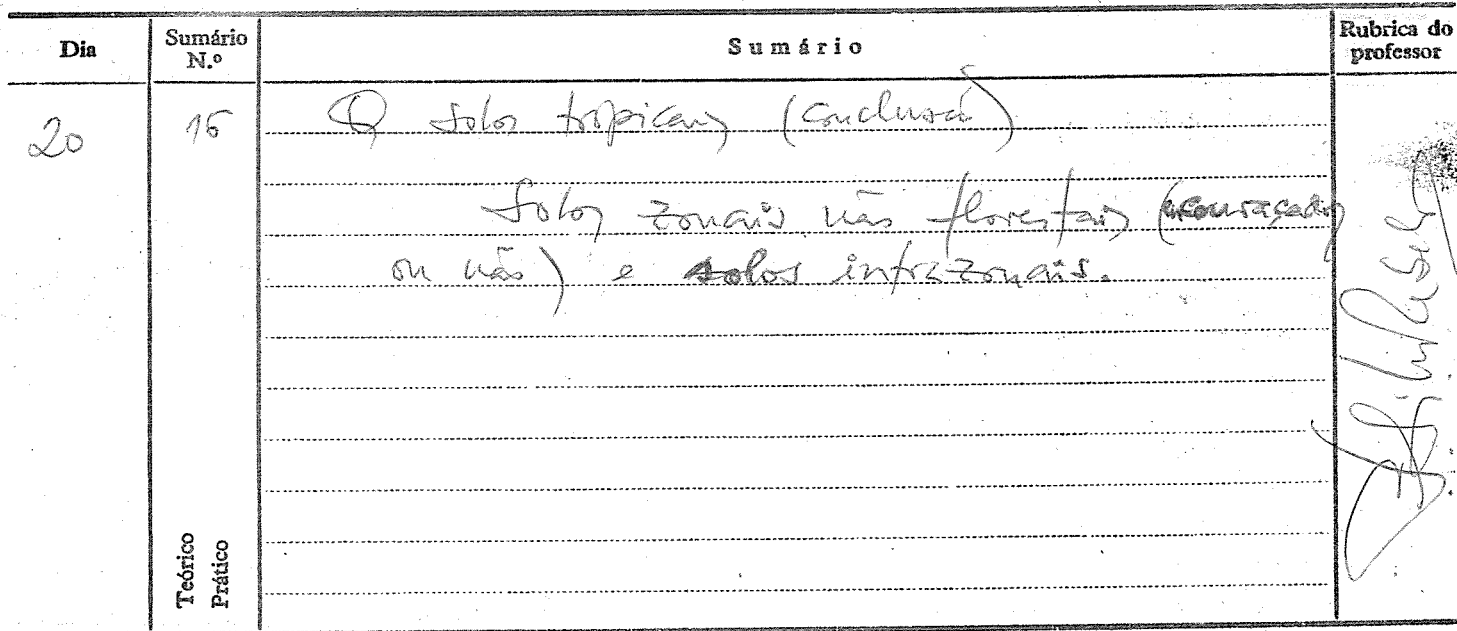 Dia
Sumário N.º
Sumário
Rubrica do professor
20
16
Os solos tropicais (conclusão)
Solos zonais não florestais (encouraçados
ou não) e solos infrazonais.
Teórico
Prático